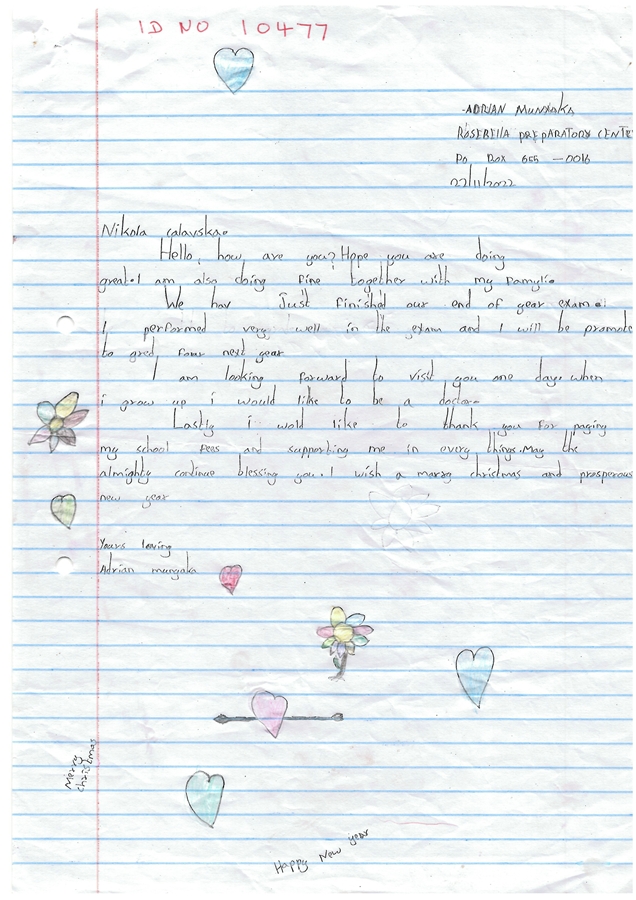 ID NO 10477
ADRIAN MUNYAKA
ROSEBELLA PREPARATORY CENTE
PO BOX 655 - 0016
22/11/2022
Nikola calavskae
Hello, how are you? Hope you are doing
great. I am also doing fine together with my family.
We hav Just finished our end of year exam.
I performed very well in the exam and I will be promote
to gred four next year
I am looking forward to visit you one day. when
i grow up i would like to be a doctor.
Lastly i wold like to thank you for paying
my school fees and supporting me in every things. May the
almighty continue blessing you. I wish a marry christmas and prosperous
new year
Yours loving
Adrian munyaka
Merry
christmas
Happy New year